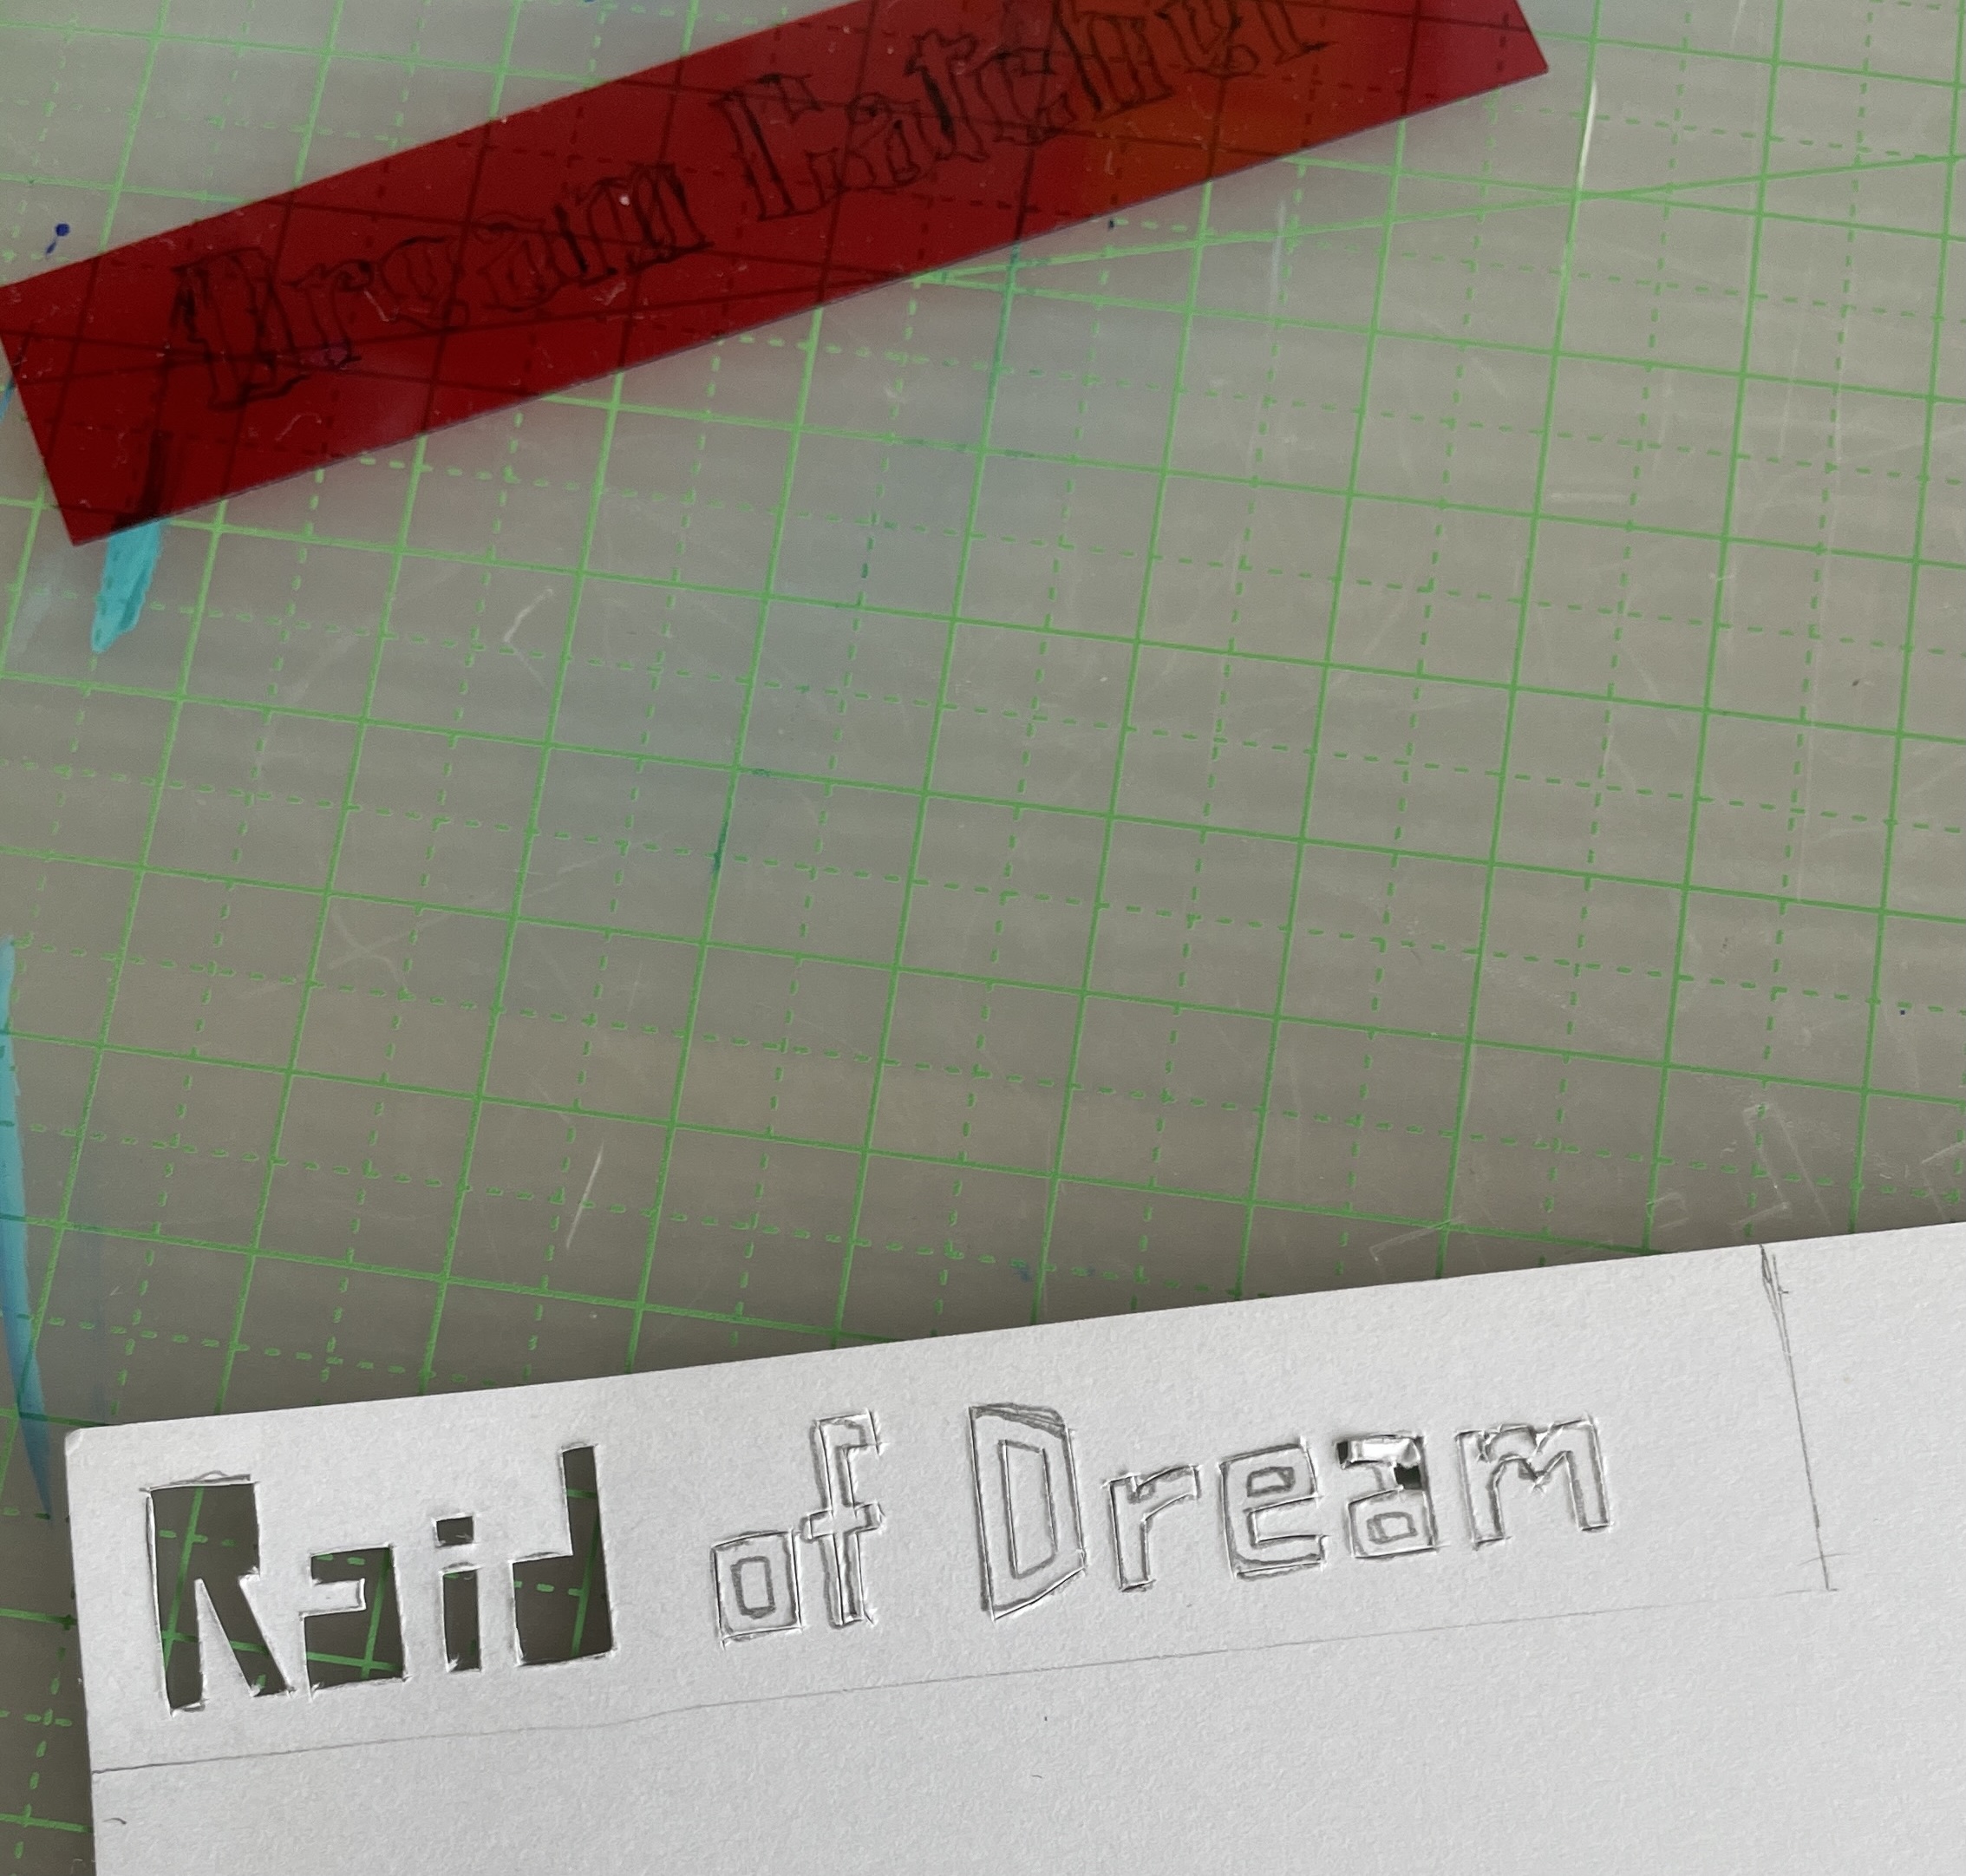 Dream Catcher
Raid of Dream